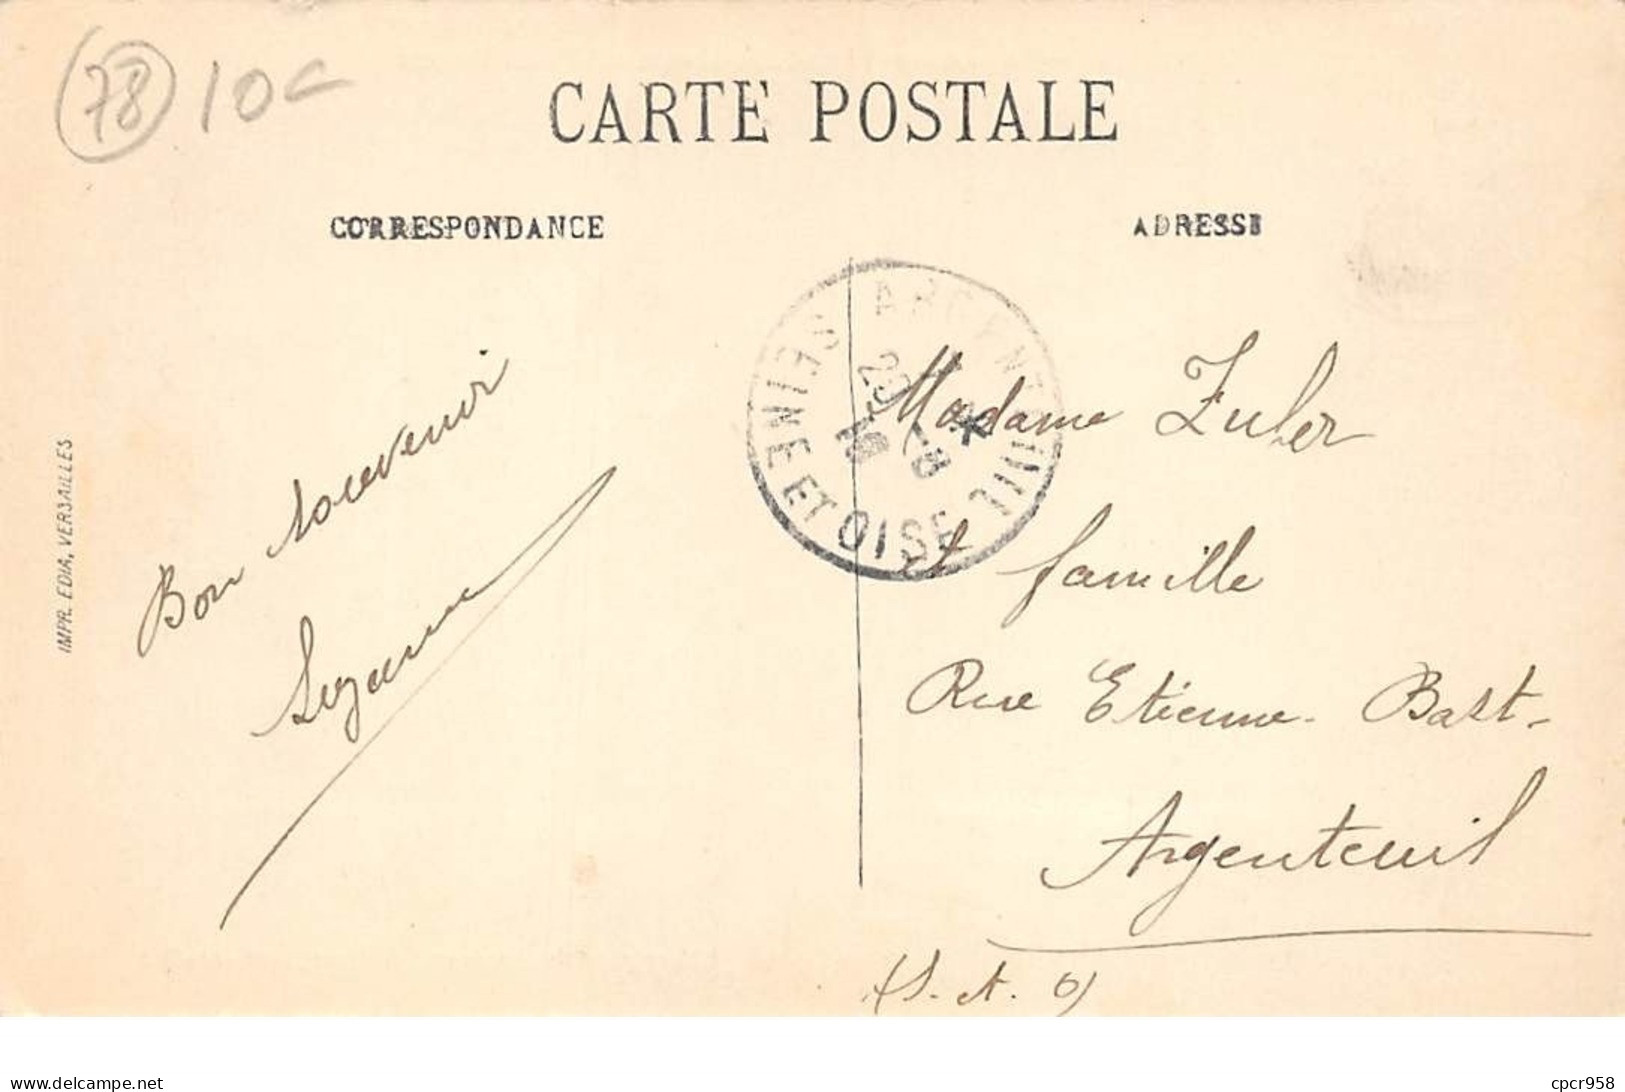 78 10c
CARTE POSTALE
CORRESPONDANCE
ADRESSE
IMPR. EDIA, VERSAILLES
Bon souvenir
Suzanne
ARGENTEUIL
SEINE ET OISE
Madame Zuber
et famille
Rue Etienne-Bast-
Argenteuil
(S. et. O)
www.delcampe.net
cpcr958